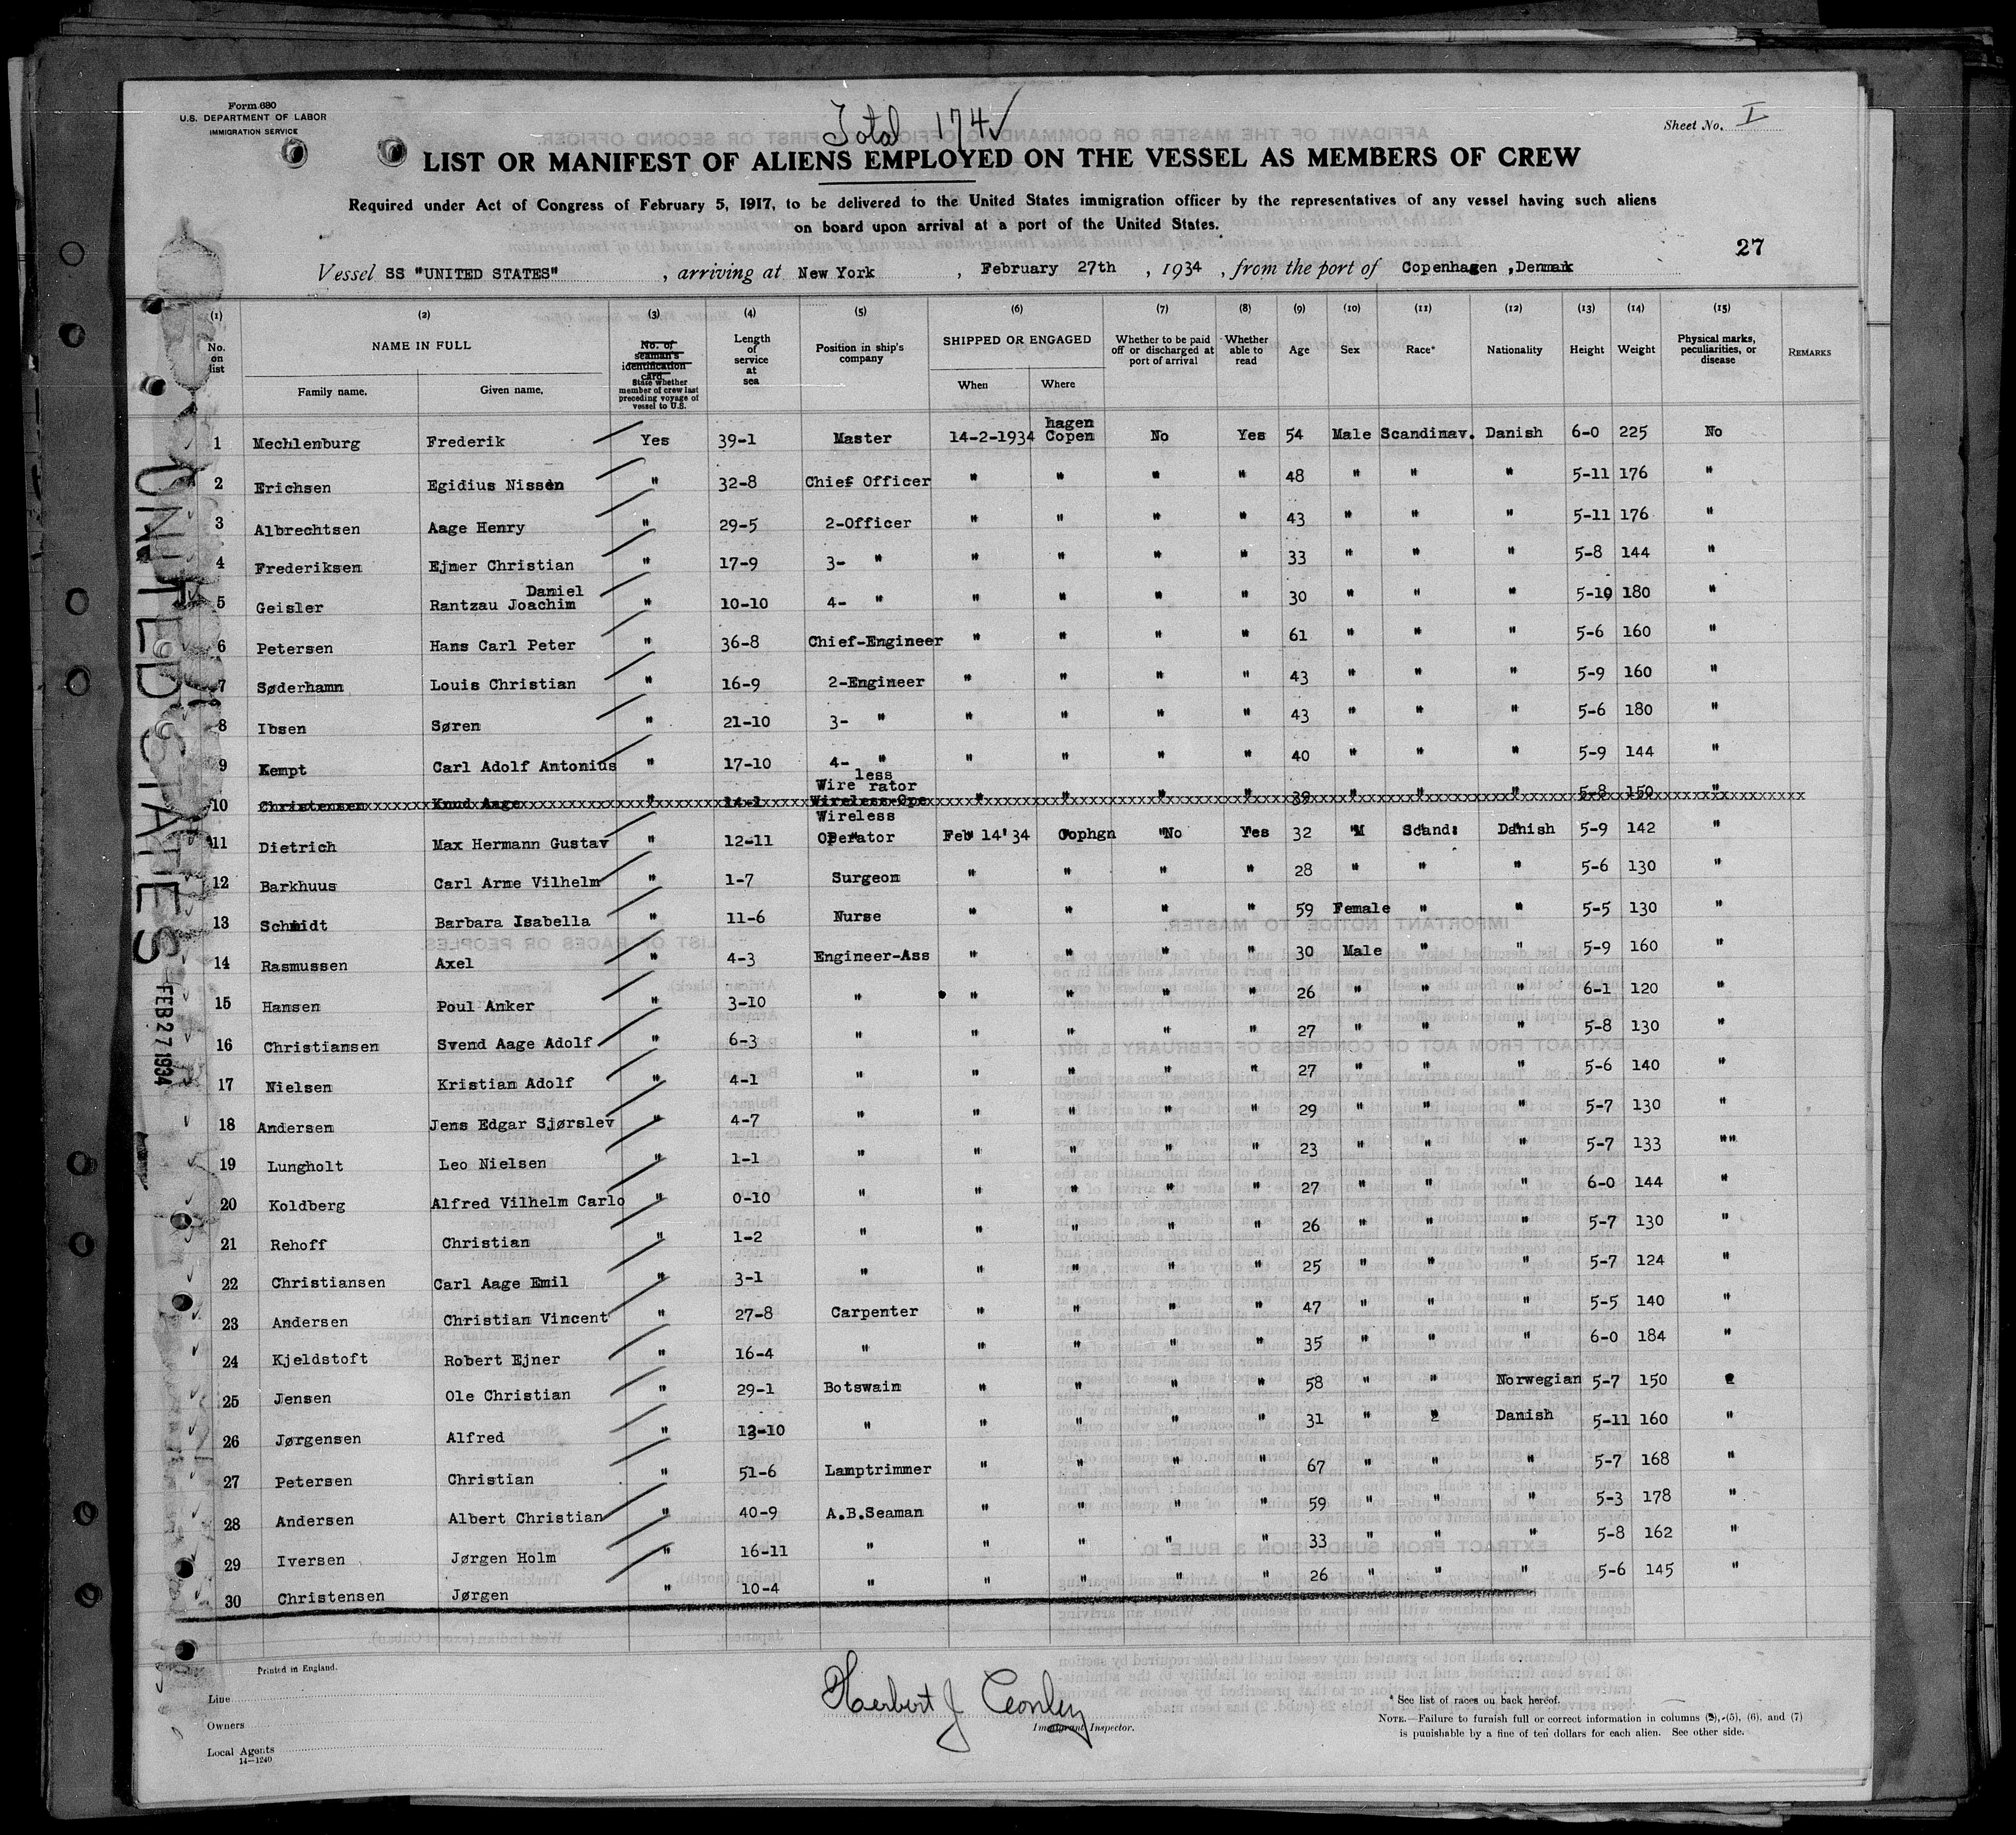 Form 680
U.S. DEPARTMENT OF LABOR
IMMIGRATION SERVICE
Total 174 ✓
Sheet No. I
LIST OR MANIFEST OF ALIENS EMPLOYED ON THE VESSEL AS MEMBERS OF CREW
Required under Act of Congress of February 5, 1917, to be delivered to the United States immigration officer by the representatives of any vessel having such aliens
on board upon arrival at a port of the United States.
27
Vessel SS "UNITED STATES", arriving at New York, February 27th, 1934, from the port of Copenhagen ,Denmark
(1) (2) (3) (4) (5) (6) (7) (8) (9) (10) (11) (12) (13) (14) (15)
No. on list NAME IN FULL Family name. Given name. No. of seaman's identification card. State whether member of crew last preceding voyage of vessel to U.S. Length of service at sea Position in ship's company SHIPPED OR ENGAGED When Where Whether to be paid off or discharged at port of arrival Whether able to read Age Sex Race* Nationality Height Weight Physical marks, peculiarities, or disease REMARKS
1 Mechlenburg Frederik Yes 39-1 Master 14-2-1934 Copenhagen No Yes 54 Male Scandinav. Danish 6-0 225 No
2 Erichsen Egidius Nissen " 32-8 Chief Officer " " " " 48 " " " 5-11 176 "
3 Albrechtsen Aage Henry " 29-5 2-Officer " " " " 43 " " " 5-11 176 "
4 Frederiksen Ejner Christian " 17-9 3- " " " " " 33 " " " 5-8 144 "
5 Geisler Rantzau Joachim Daniel " 10-10 4- " " " " " 30 " " " 5-10 180 "
6 Petersen Hans Carl Peter " 36-8 Chief-Engineer " " " " 61 " " " 5-6 160 "
7 Søderhamn Louis Christian " 16-9 2-Engineer " " " " 43 " " " 5-9 160 "
8 Ibsen Søren " 21-10 3- " " " " " 43 " " " 5-6 180 "
9 Kempt Carl Adolf Antonius " 17-10 4- " " " " " 40 " " " 5-9 144 "
10 Christensen Knud Aage " 14-1 Wireless Operator " " " " 39 " " " 5-8 150 "
11 Dietrich Max Hermann Gustav " 12-11 Wireless Operator Feb 14' 34 Cophgn No Yes 32 M Scand: Danish 5-9 142 "
12 Barkhuus Carl Arne Vilhelm " 1-7 Surgeon " " " " 28 " " " 5-6 130 "
13 Schmidt Barbara Isabella " 11-6 Nurse " " " " 59 Female " " 5-5 130 "
14 Rasmussen Axel " 4-3 Engineer-Ass " " " " 30 Male " " 5-9 160 "
15 Hansen Poul Anker " 3-10 " " " " " 26 " " " 6-1 120 "
16 Christiansen Svend Aage Adolf " 6-3 " " " " " 27 " " " 5-8 130 "
17 Nielsen Kristian Adolf " 4-1 " " " " " 27 " " " 5-6 140 "
18 Andersen Jens Edgar Sjørslev " 4-7 " " " " " 29 " " " 5-7 130 "
19 Lungholt Leo Nielsen " 1-1 " " " " " 23 " " " 5-7 133 ""
20 Koldberg Alfred Vilhelm Carlo " 0-10 " " " " " 27 " " " 6-0 144 "
21 Rehoff Christian " 1-2 " " " " " 26 " " " 5-7 130 "
22 Christiansen Carl Aage Emil " 3-1 " " " " " 25 " " " 5-7 124 "
23 Andersen Christian Vincent " 27-8 Carpenter " " " " 47 " " " 5-5 140 "
24 Kjeldstoft Robert Ejner " 16-4 " " " " " 35 " " " 6-0 184 "
25 Jensen Ole Christian " 29-1 Botswain " " " " 58 " " Norwegian 5-7 150 "
26 Jørgensen Alfred " 13-10 " " " " " 31 " " Danish 5-11 160 "
27 Petersen Christian " 51-6 Lamptrimmer " " " " 67 " " " 5-7 168 "
28 Andersen Albert Christian " 40-9 A.B.Seaman " " " " 59 " " " 5-3 178 "
29 Iversen Jørgen Holm " 16-11 " " " " " 33 " " " 5-8 162 "
30 Christensen Jørgen " 10-4 " " " " " 26 " " " 5-6 145 "
UNITED STATES
FEB 27 1934
Printed in England.
Line
Owners
Local Agents
14—1240
Herbert J Conley
Immigrant Inspector.
* See list of races on back hereof.
NOTE.—Failure to furnish full or correct information in columns (2), (5), (6), and (7)
is punishable by a fine of ten dollars for each alien. See other side.